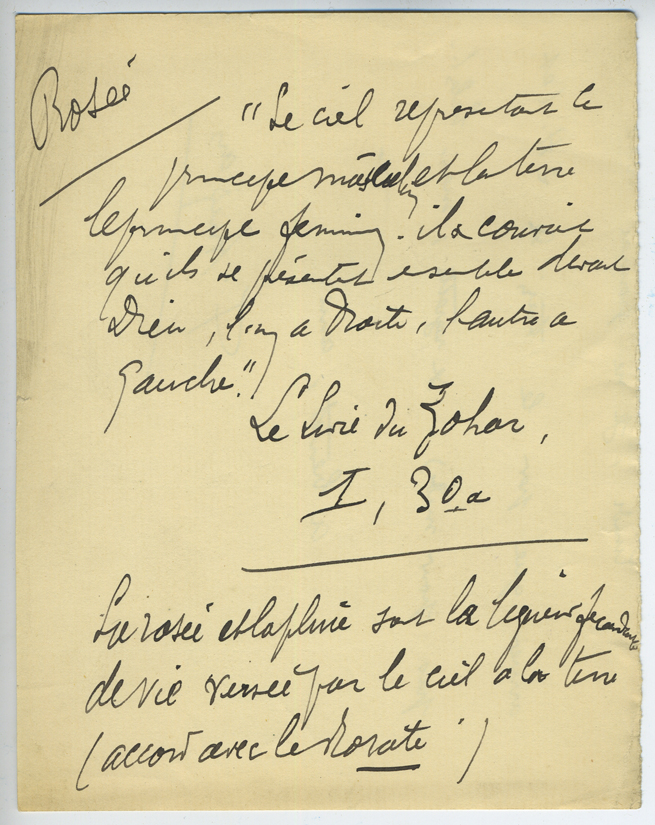 Rosée
"Le ciel représentant le
principe masculin et la terre
le principe féminin. il a convenu
qu'ils se présentent ensemble devant
Dieu, l'un a Droite, l'autre a
gauche."
Le Livre du Zohar,
I, 30a
La rosée et la pluie sont la liqueur fécondante
de vie versée par le ciel a la terre
(accord avec le Rorate)